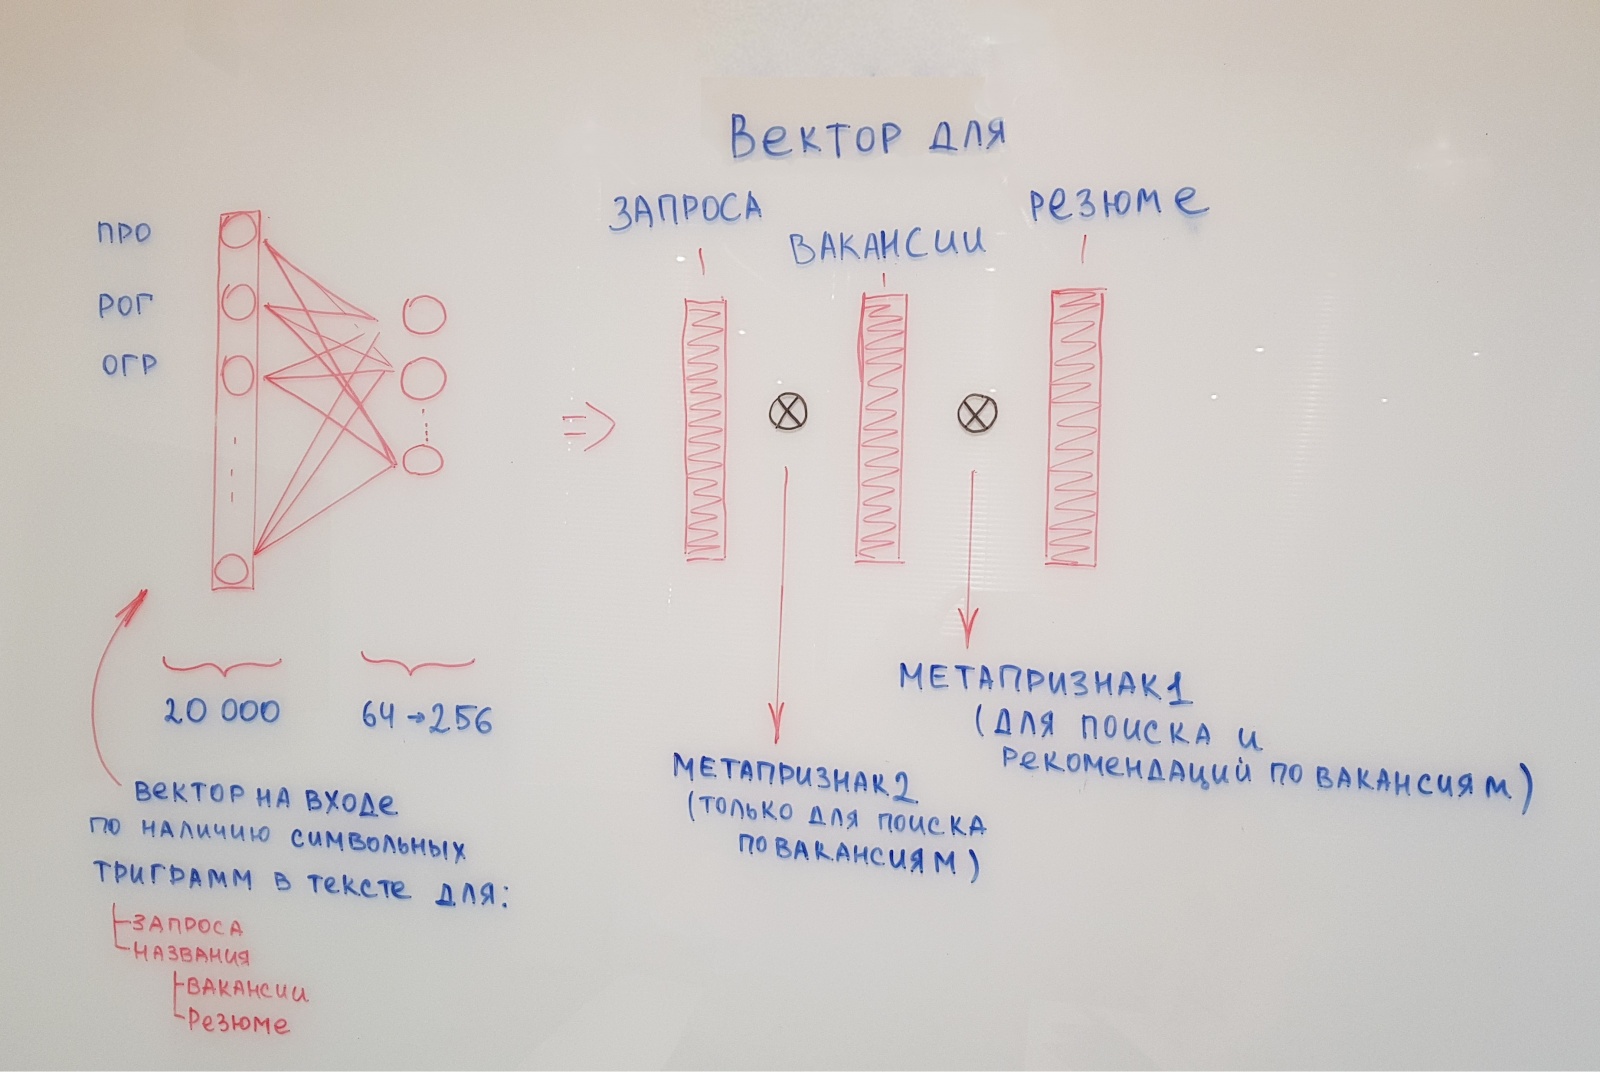 Вектор для
ЗАПРОСА
ВАКАНСИИ
РЕЗЮМЕ
ПРО
РОГ
ОГР
20 000
64→256
ВЕКТОР НА ВХОДЕ
ПО НАЛИЧИЮ СИМВОЛЬНЫХ
ТРИГРАММ В ТЕКСТЕ ДЛЯ:
ЗАПРОСА
НАЗВАНИЯ
ВАКАНСИИ
РЕЗЮМЕ
МЕТАПРИЗНАК2
(ТОЛЬКО ДЛЯ ПОИСКА
ПО ВАКАНСИЯМ)
МЕТАПРИЗНАК1
(ДЛЯ ПОИСКА И
РЕКОМЕНДАЦИЙ ПО ВАКАНСИЯМ)